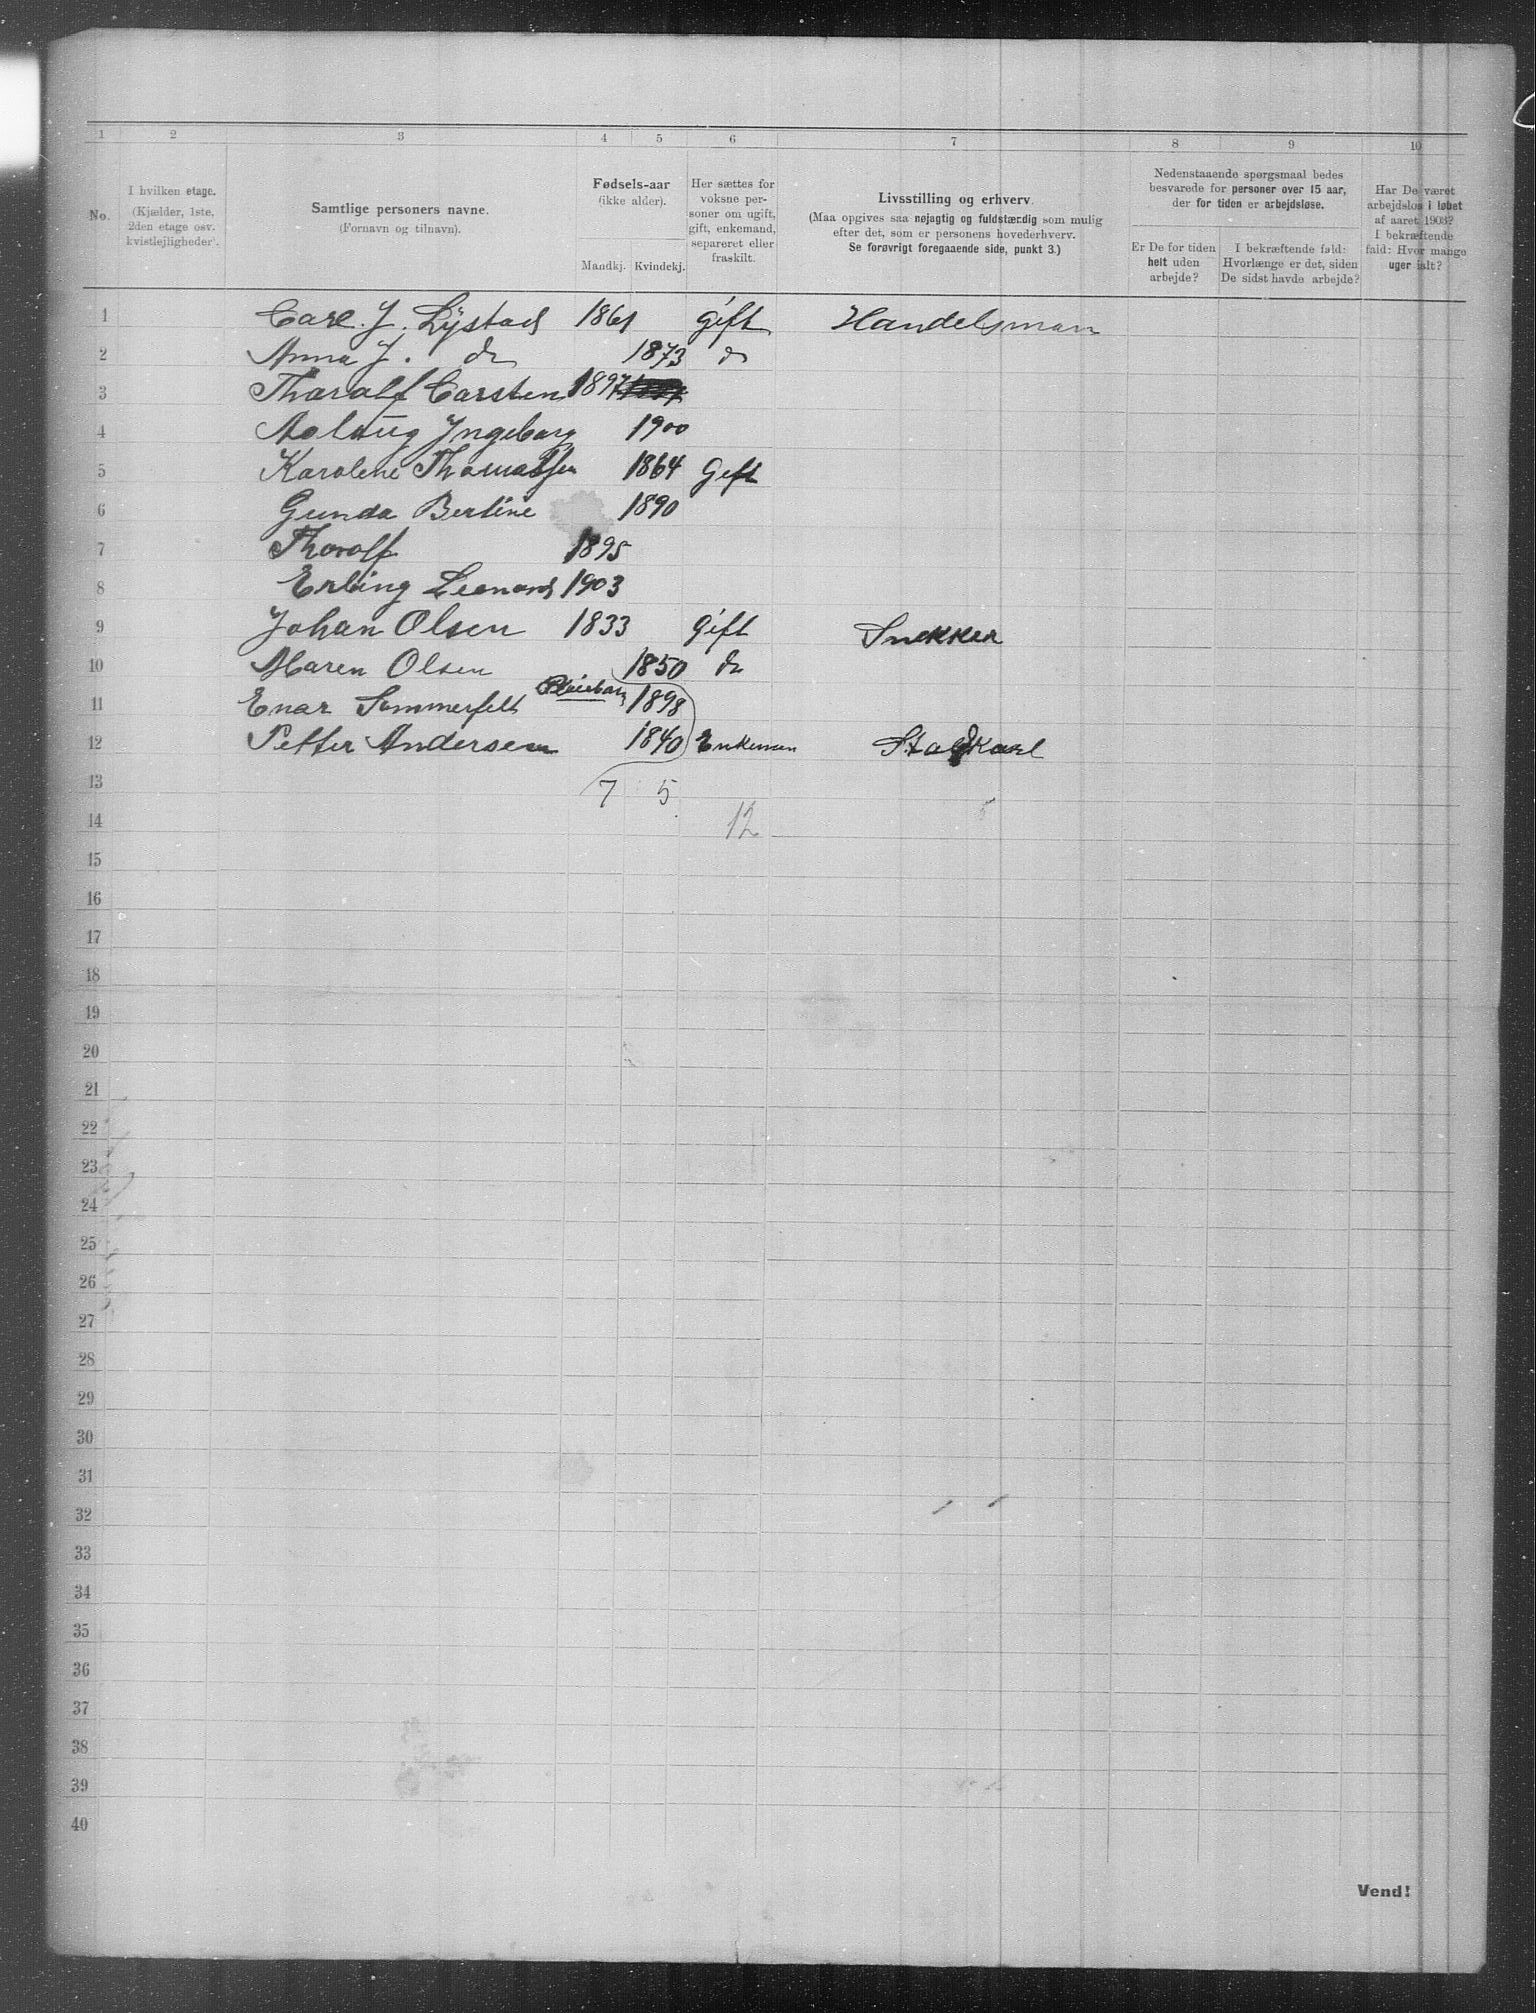 1 2 3 4 5 6 7 8 9 10
No. I hvilken etage. (Kjælder, 1ste, 2den etage osv. kvistlejligheder). Samtlige personers navne. (Fornavn og tilnavn). Fødsels-aar (ikke alder). Mandkj. Kvindekj. Her sættes for voksne personer om ugift, gift, enkemand, separeret eller fraskilt. Livsstilling og erhverv. (Maa opgives saa nøjagtig og fuldstændig som mulig efter det, som er personens hovederhverv. Se forøvrigt foregaaende side, punkt 3.) Nedenstaaende spørgsmaal bedes besvarede for personer over 15 aar, der for tiden er arbejdsløse. Er De for tiden helt uden arbejde? I bekræftende fald: Hvorlænge er det, siden De sidst havde arbejde? Har De været arbejdsløs i løbet af aaret 1903? I bekræftende fald: Hvor mange uger ialt?
1 Carl. J. Lÿstad 1861 gift Handelsman
2 Anna J. do 1873 do
3 Tharalf Carsten 1897
4 Aslaug Ingeborg 1900
5 Karolene Thomassen 1864 Gift
6 Gunda Bertine 1890
7 Thorolf 1895
8 Erling Leonard 1903
9 Johan Olsen 1833 gift Snekker
10 Maren Olsen 1850 do
11 Enar Sommerfelt Pleiebarn 1898
12 Petter Andersen 1840 Enkeman Staldkarl
13 7 5
14 12
15
16
17
18
19
20
21
22
23
24
25
26
27
28
29
30
31
32
33
34
35
36
37
38
39
40
Vend!